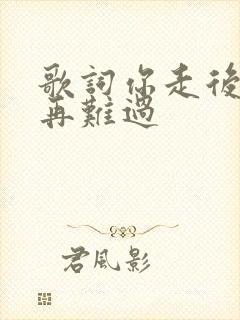 歌詞你走後
再難過
君風影